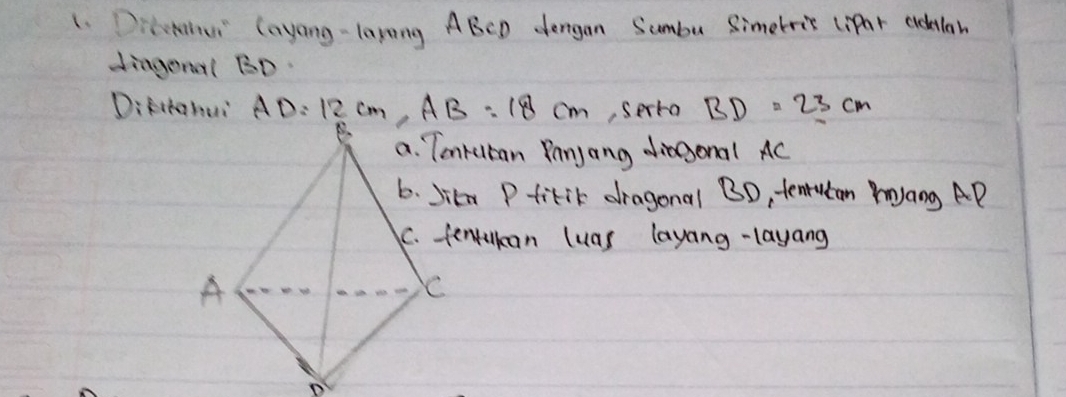 1. Diketahui layang-layang ABCD dengan Sumbu Simetris lipat adalah
diagonal BD.
Diketahui AD = 12 cm, AB = 18 cm, serta BD = 23 cm
a. Tentukan Panjang diagonal AC
b. Jika P titik diagonal BD, tentukan Panjang AP
c. tentukan luas layang-layang
B
A
C
D